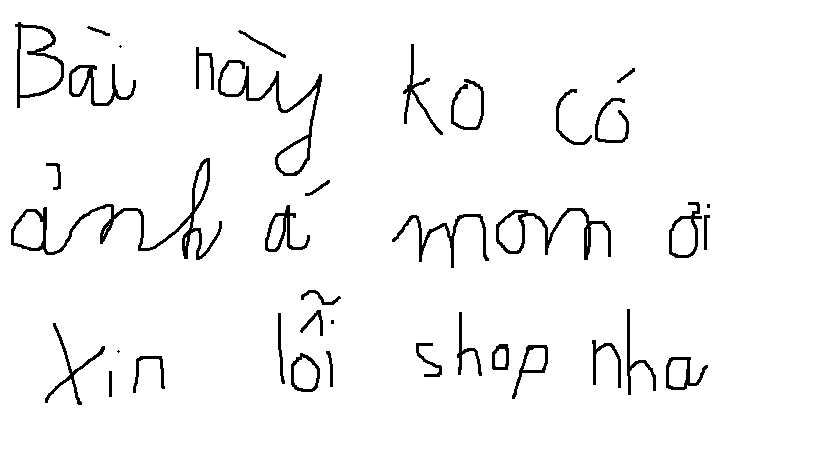 Bài này ko có
ảnh á mom ơi
xin lỗi shop nha